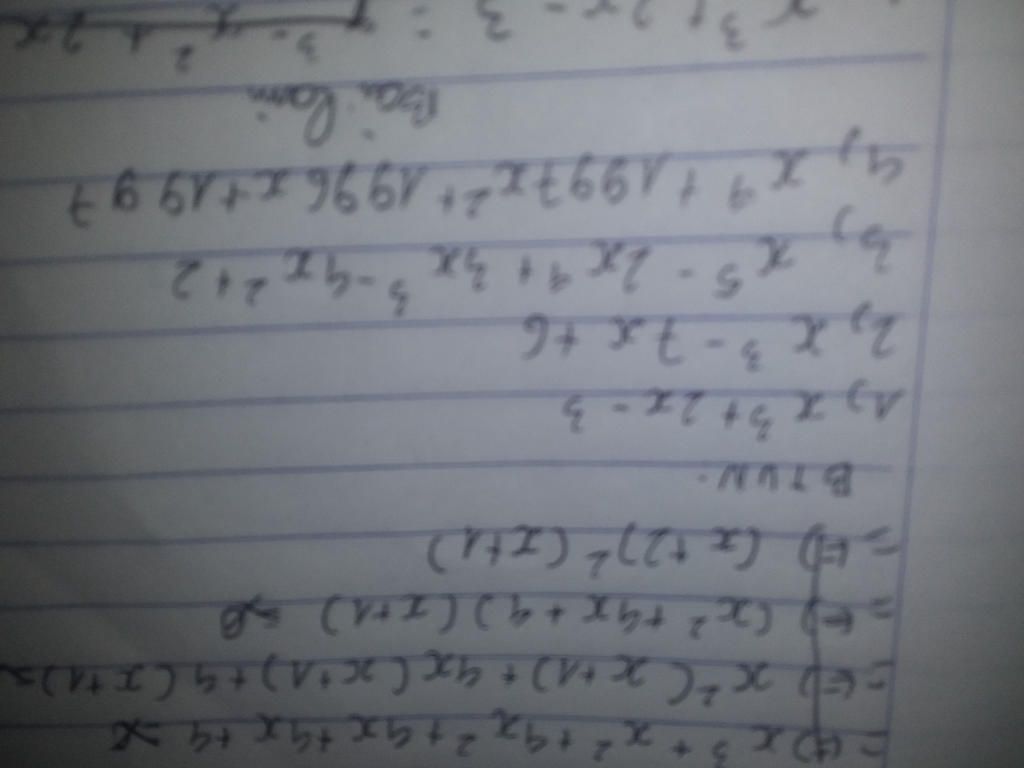 = x³ + x² + 4x² + 4x + 4x + 4
= x²(x+1) + 4x(x+1) + 4(x+1) =
= (x² + 4x + 4)(x+1)
= (x+2)²(x+1)
BTVN.
1, x³ + 2x - 3
2, x³ - 7x + 6
3, x⁵ - 2x⁴ + 3x³ - 4x² + 2
4, x⁴ + 1997x² + 1996x + 1997
Bài làm
x³ + 2x - 3 = x³ - x² + 2x